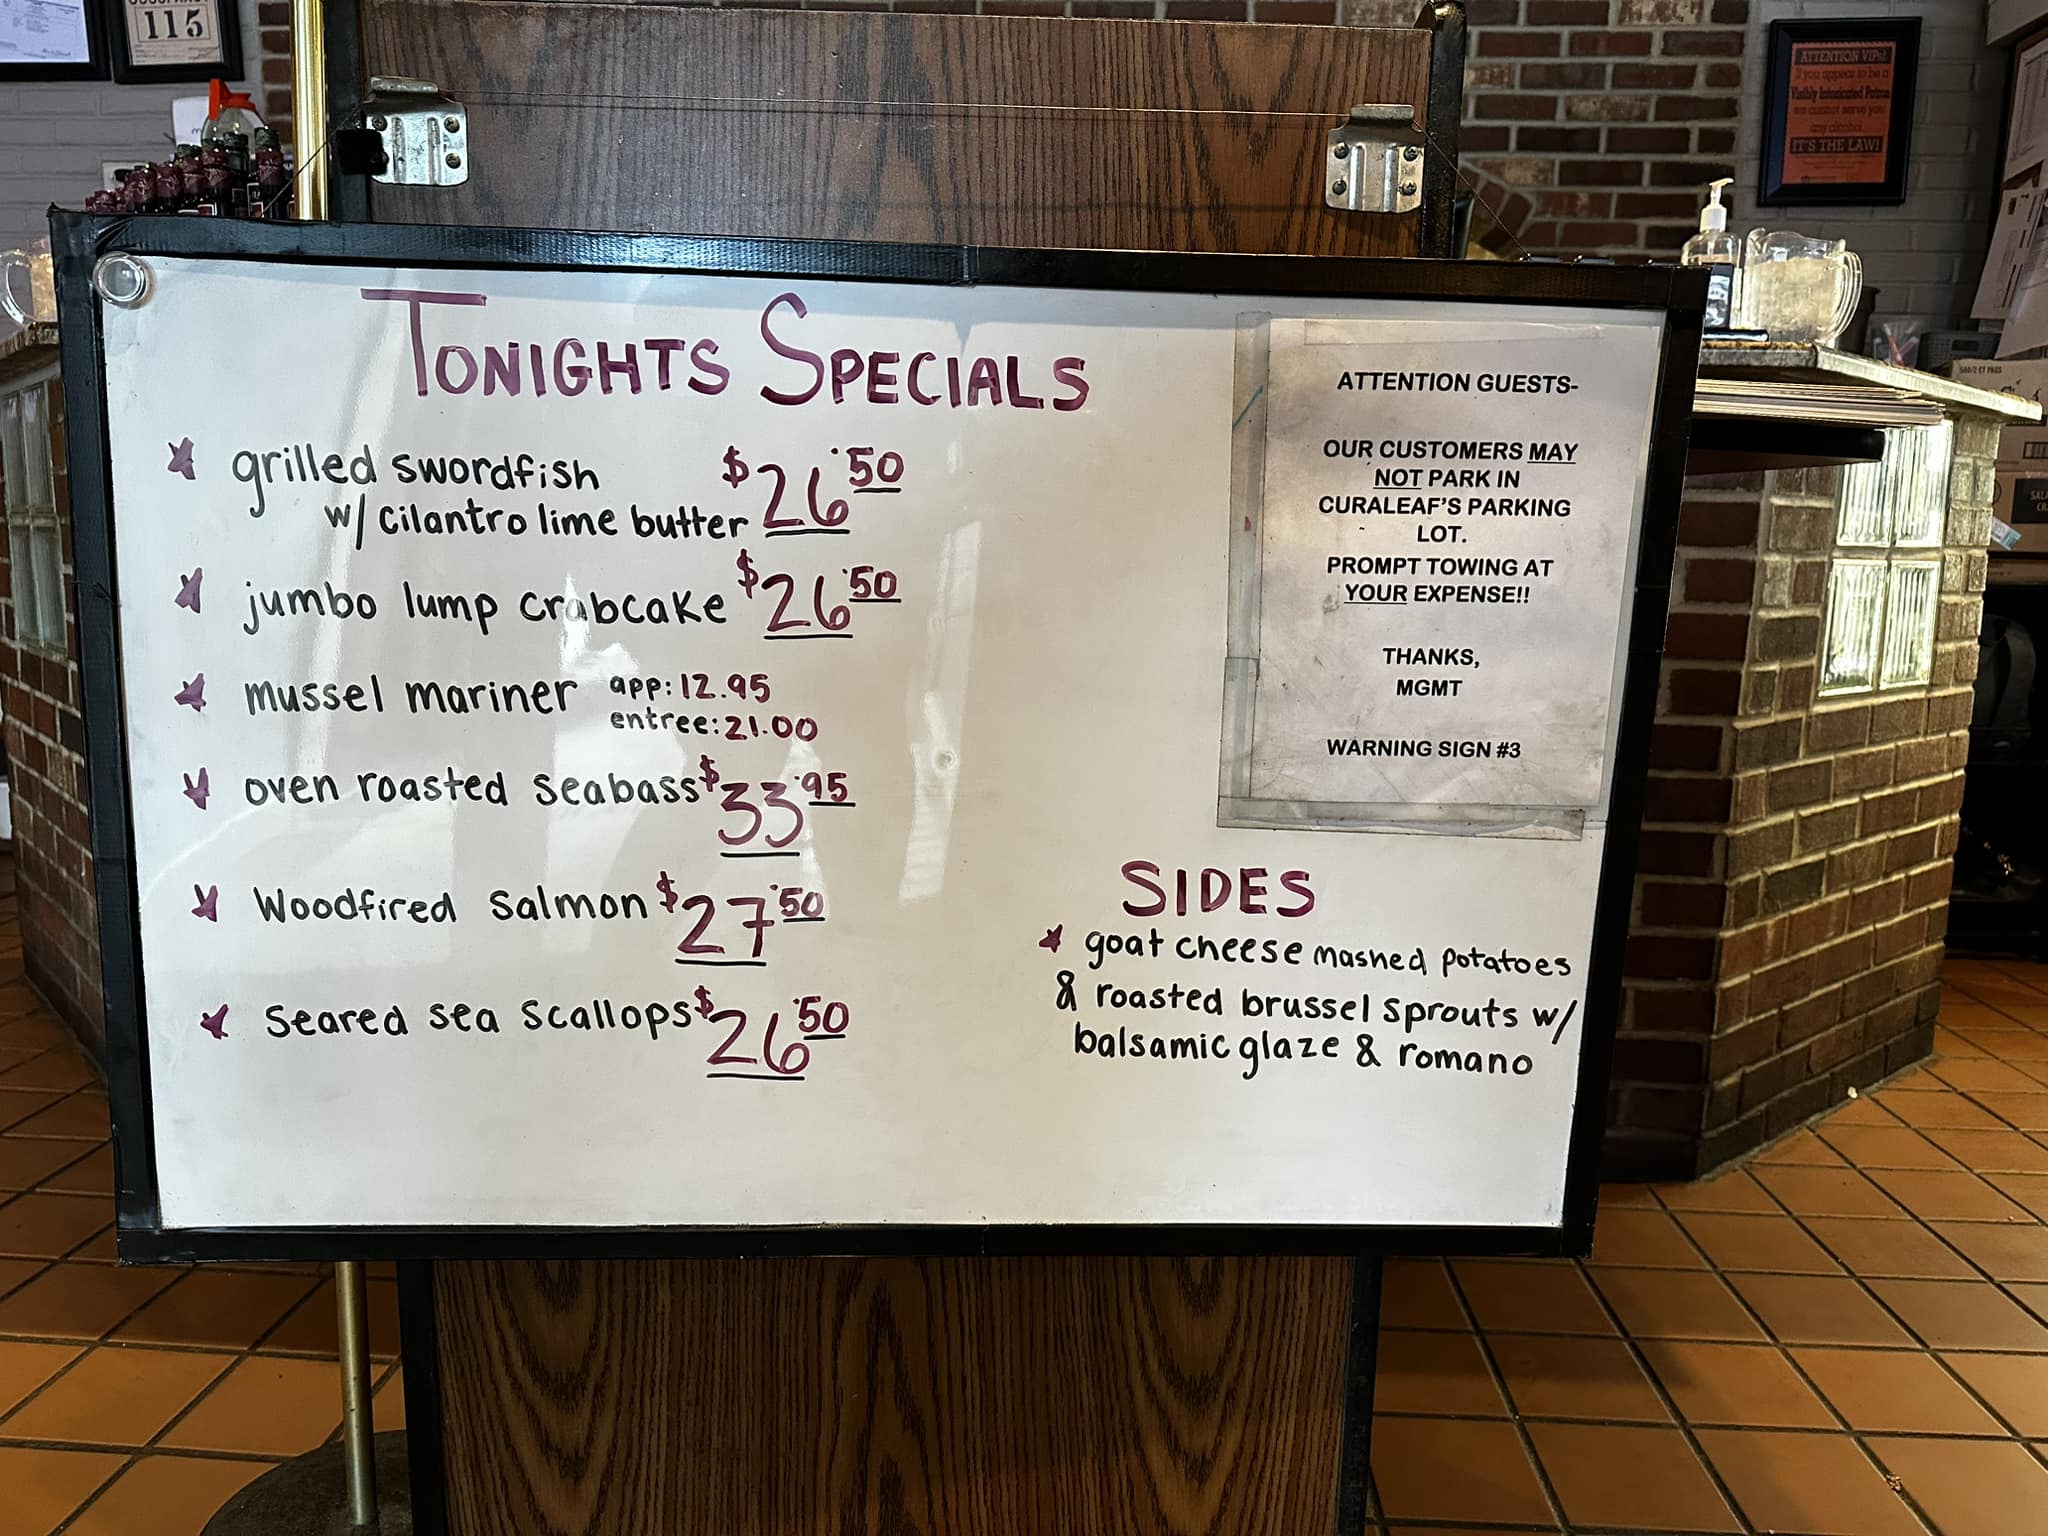 OCCUPANCY
115
ATTENTION VIPs!
If you appear to be a
Visibly Intoxicated Patron
we cannot serve you
any alcohol.
IT'S THE LAW!
TONIGHTS SPECIALS
grilled swordfish $26.50
w/ cilantro lime butter
jumbo lump crabcake $26.50
mussel mariner app: 12.95
entree: 21.00
oven roasted seabass $33.95
Woodfired salmon $27.50
Seared sea scallops $26.50
ATTENTION GUESTS-
OUR CUSTOMERS MAY
NOT PARK IN
CURALEAF'S PARKING
LOT.
PROMPT TOWING AT
YOUR EXPENSE!!
THANKS,
MGMT
WARNING SIGN #3
SIDES
goat cheese mashed potatoes
& roasted brussel sprouts w/
balsamic glaze & romano